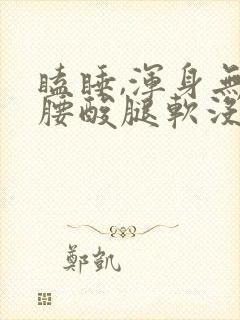 瞌睡,渾身無
腰酸腿軟沒
鄭凱